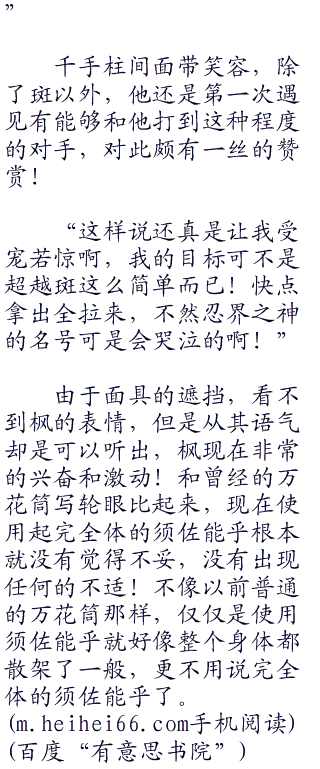 ”
千手柱间面带笑容，除
了斑以外，他还是第一次遇
见有能够和他打到这种程度
的对手，对此颇有一丝的赞
赏！
“这样说还真是让我受
宠若惊啊，我的目标可不是
超越斑这么简单而已！快点
拿出全拉来，不然忍界之神
的名号可是会哭泣的啊！”
由于面具的遮挡，看不
到枫的表情，但是从其语气
却是可以听出，枫现在非常
的兴奋和激动！和曾经的万
花筒写轮眼比起来，现在使
用起完全体的须佐能乎根本
就没有觉得不妥，没有出现
任何的不适！不像以前普通
的万花筒那样，仅仅是使用
须佐能乎就好像整个身体都
散架了一般，更不用说完全
体的须佐能乎了。
(m.heihei66.com手机阅读)
(百度“有意思书院”)